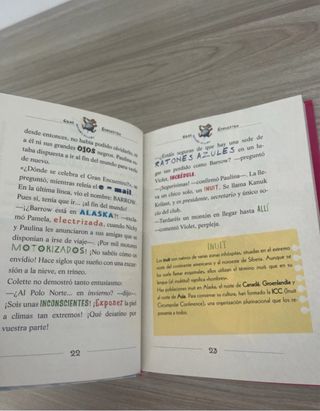 Gran Encuentro
desde entonces, no había podido olvidarlo, ni
a él ni sus grandes OJOS negros. Paulina es-
taba dispuesta a ir al fin del mundo para verlo
de nuevo.
«¿Dónde se celebra el Gran Encuentro?»,
preguntó, mientras releía el e-mail.
En la última línea, vio el nombre: BARROW.
Pues sí, tenía que ir... ¡al fin del mundo!
—¡¿Barrow está en ALASKA?! —excla-
mó Pamela, electrizada, cuando Nicky
y Paulina les anunciaron a sus amigas que se
disponían a irse de viaje—. ¡Por mil motores
MOTORIZADOS! ¡No sabéis cómo os
envidio! Hace siglos que sueño con una excur-
sión a la nieve, en trineo.
Colette no demostró tanto entusiasmo:
—¿Al Polo Norte... en invierno? —dijo—.
¡Sois unas INCONSCIENTES! ¡Exponer la piel
a climas tan extremos! ¡Qué desatino por
vuestra parte!
22
Gran Encuentro
—¿Estáis seguras de que hay una sede de
RATONES AZULES en un lu-
gar tan perdido como Barrow? —preguntó
Violet, INCRÉDULA.
—¡Segurísimas! —confirmó Paulina—. La lle-
va un chico solo, un INUIT. Se llama Kanuk
y es presidente, secretario y único so-
cio del club.
—Tardaréis un montón en llegar hasta ALLÍ
—comentó Violet, perpleja.
INUIT
Los inuit son nativos de varias zonas inhóspitas, situadas en el extremo
norte del continente americano y el noreste de Siberia. Aunque se
los llame frecuentemente esquimales, ellos utilizan el término inuit que en su
lengua (el inuktitut) significa «hombres».
Hay poblaciones inuit en Alaska, el norte de Canadá, Groenlandia y
el norte de Asia. Para conservar su cultura, han formado la ICC (Inuit
Circumpolar Conference), una organización plurinacional que los re-
presenta a todos.
23